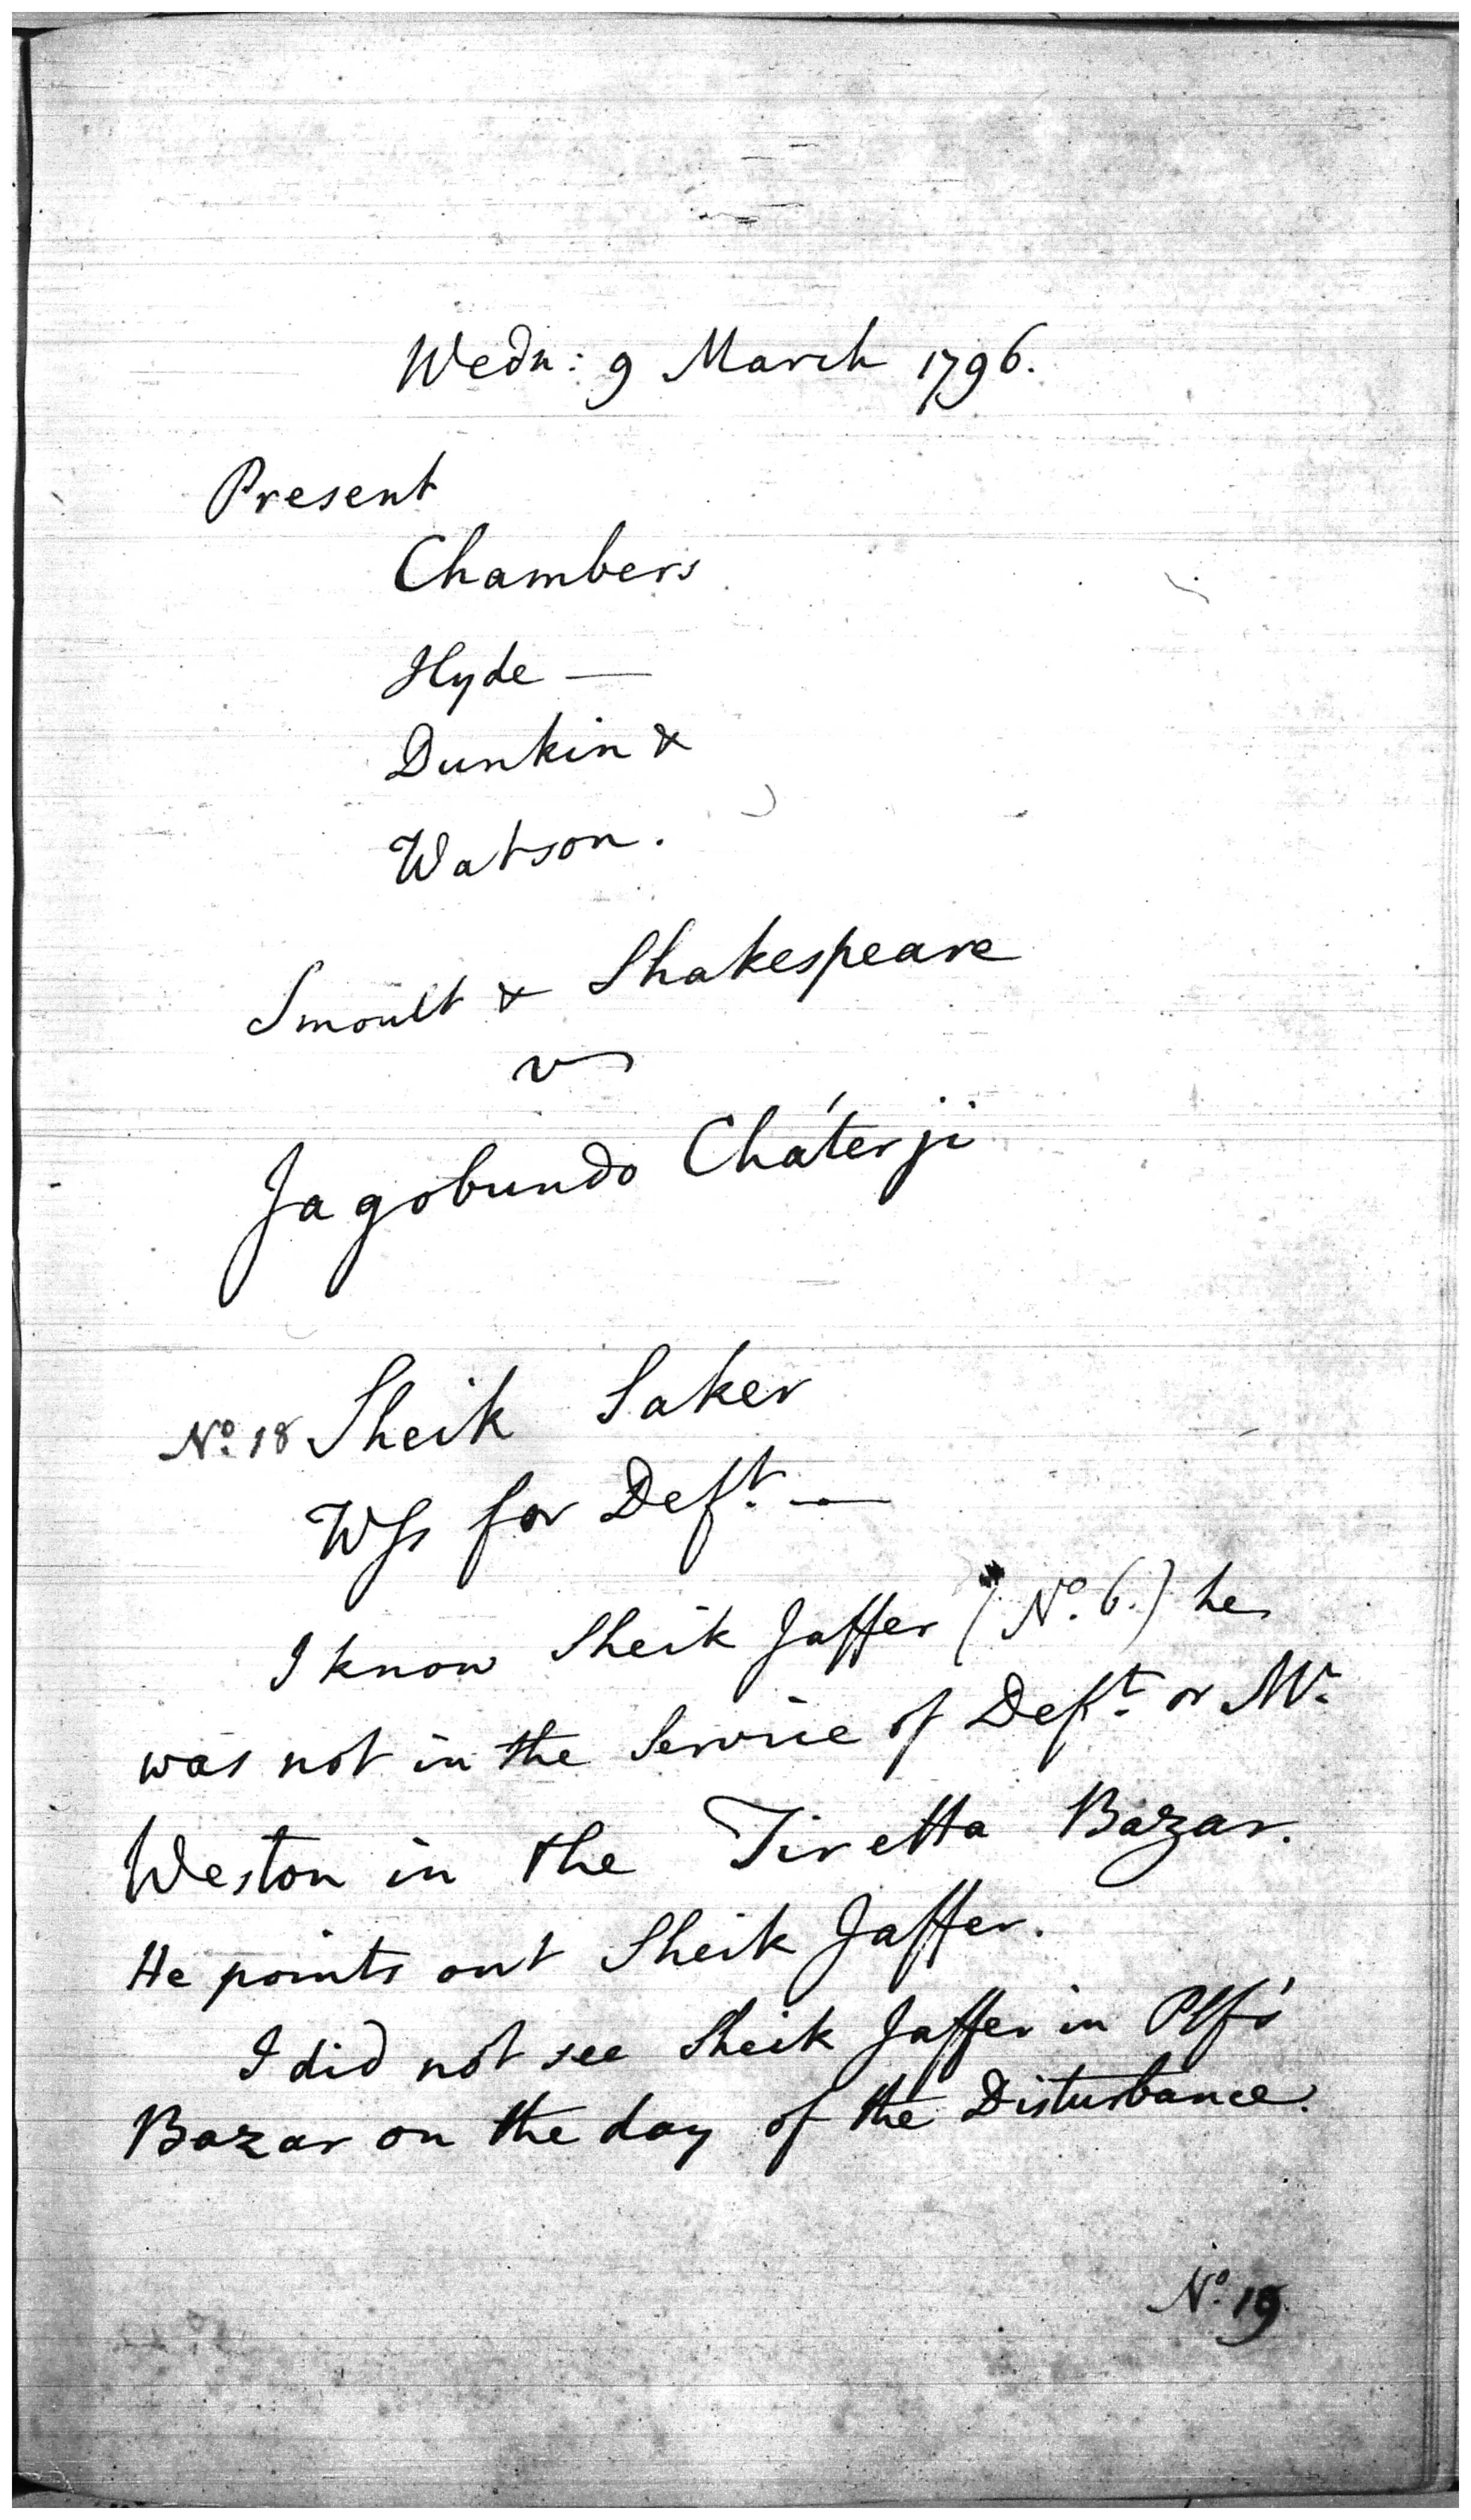 Wedn: 9 March 1796.
Present
Chambers
Hyde —
Dunkin &
Watson.
Smoult & Shakespeare
vs
Jagobundo Cháterji
No. 18 Sheik Saker
Wss for Deft. —
I know Sheik Jaffer (No. 6.) he
was not in the Service of Deft. or Mr.
Weston in the Tiretta Bazar.
He points out Sheik Jaffer.
I did not see Sheik Jaffer in Plfs'
Bazar on the day of the Disturbance.
No. 19.